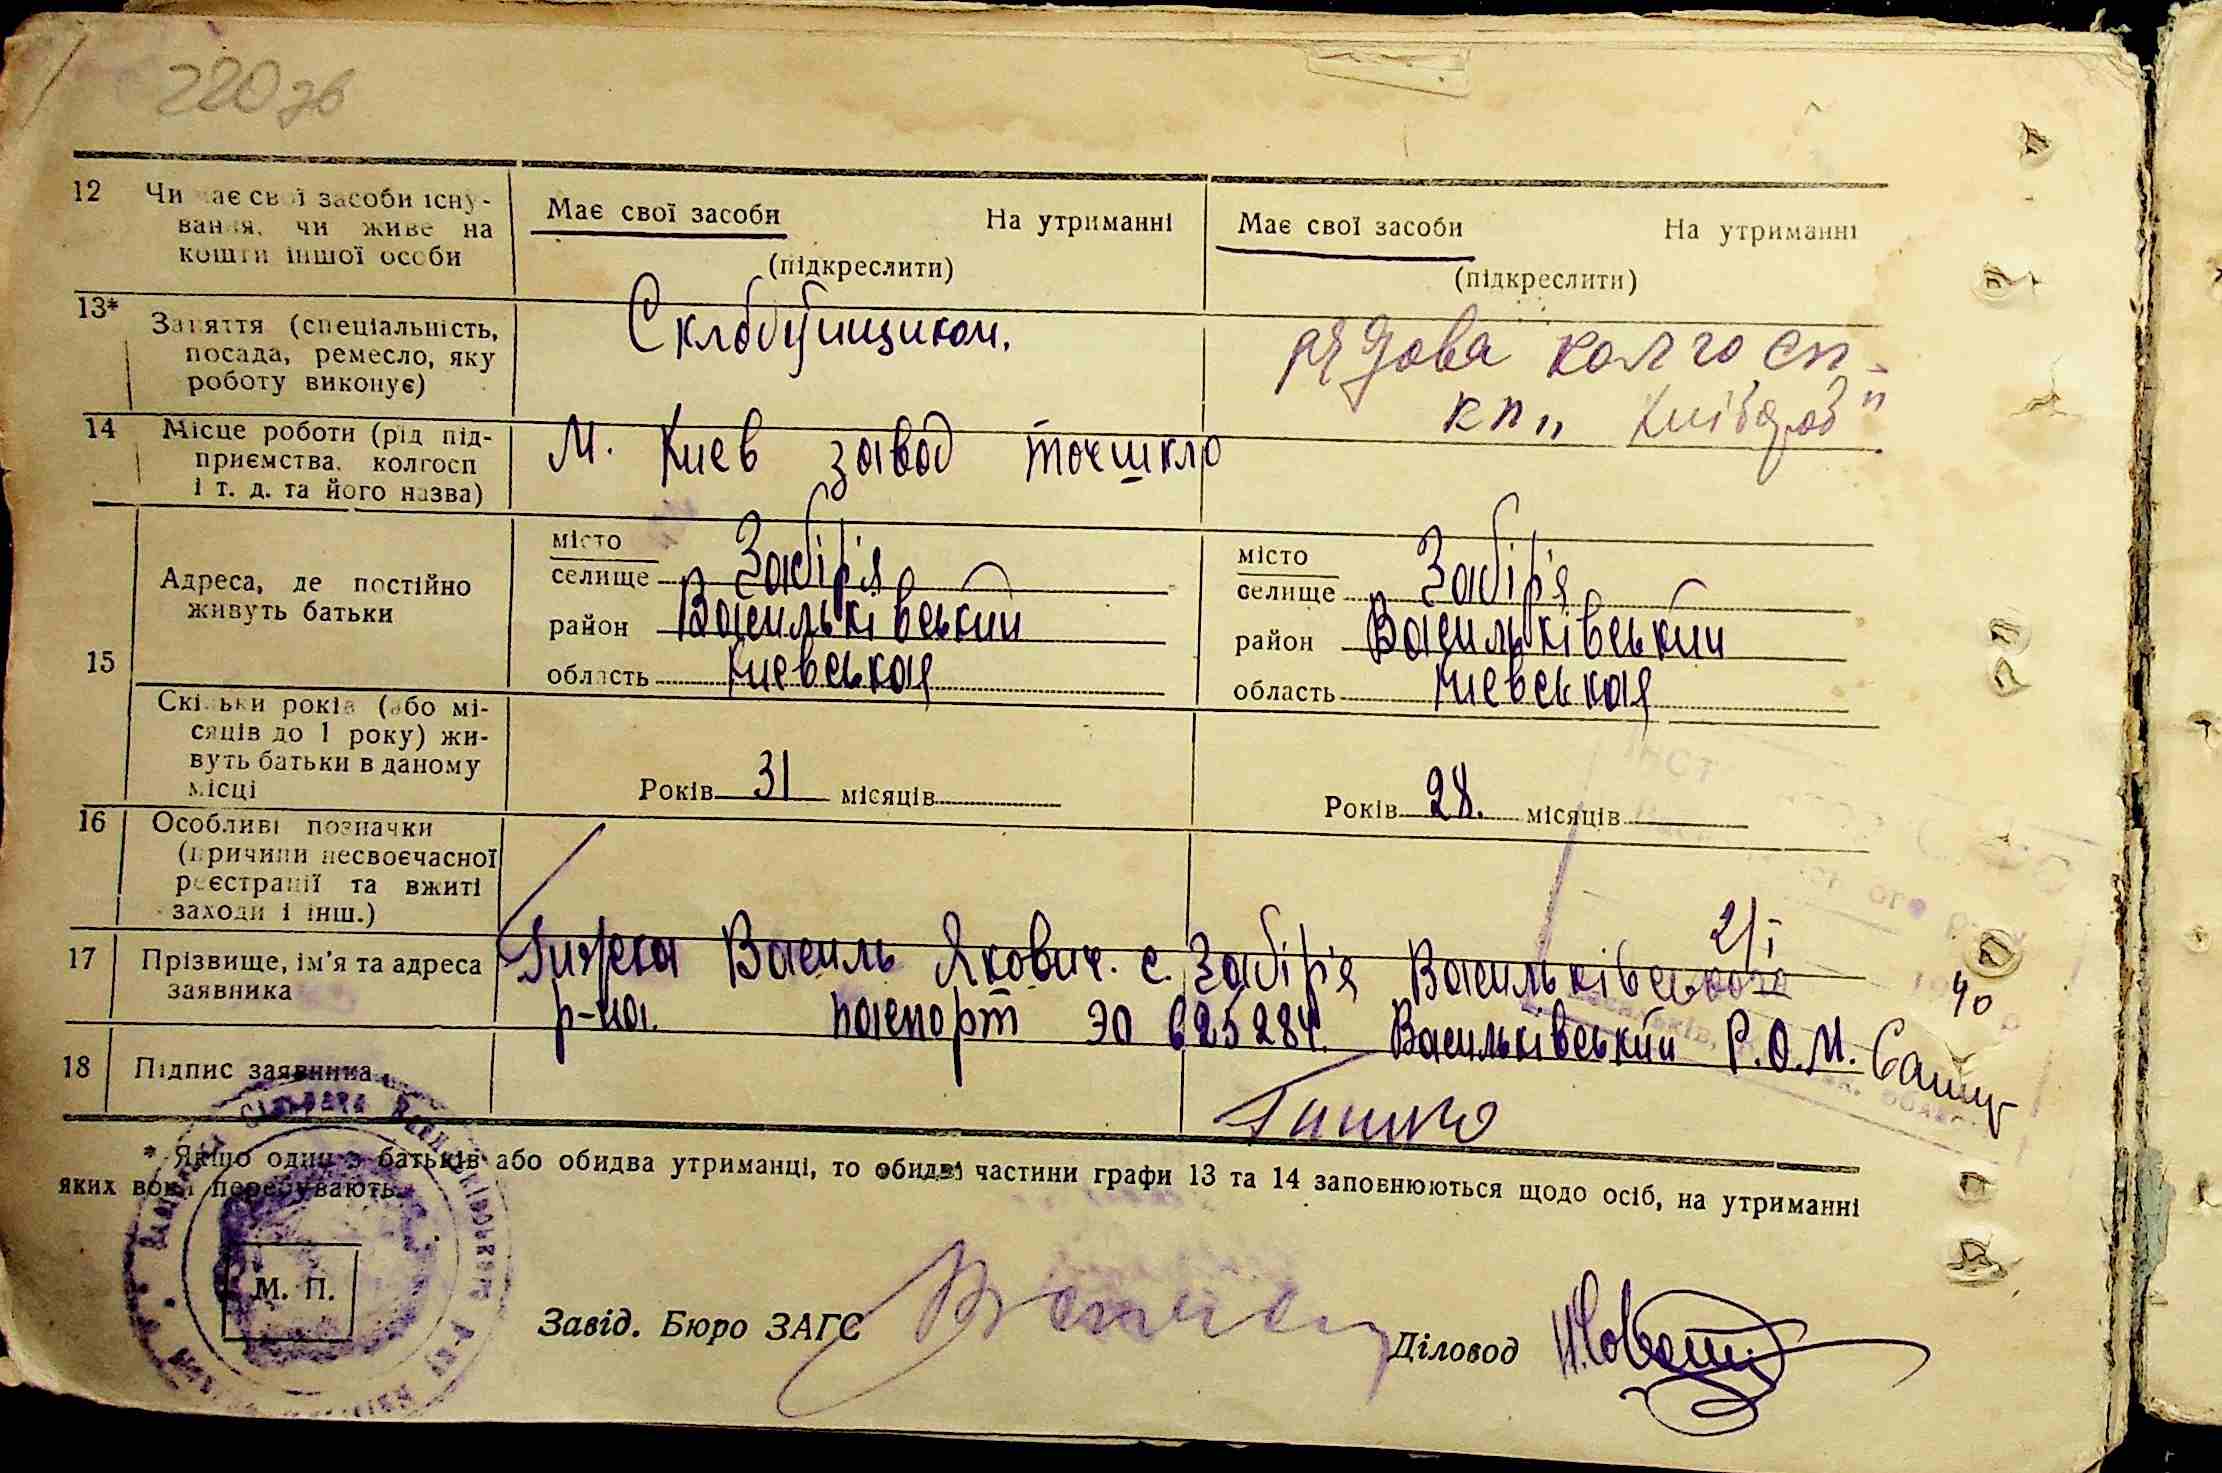 220 зв
12 Чи має свої засоби існу-
вання, чи живе на
кошти іншої особи
Має свої засоби На утриманні
(підкреслити)
Має свої засоби На утриманні
(підкреслити)
13* Заняття (спеціальність,
посада, ремесло, яку
роботу виконує)
рядова колгосп-
14 Місце роботи (рід під-
приємства, колгосп
і т. д. та його назва)
М. Киев завод точшкло
15 Адреса, де постійно
живуть батьки
місто
селище Забір'я
район Васильківський
область Киевськая
місто
селище Забір'я
район Васильківський
область Киевськая
Скільки років (або мі-
сяців до 1 року) жи-
вуть батьки в даному
місці
Років 31 місяців
Років 28. місяців
16 Особливі позначки
(причини несвоєчасної
реєстрації та вжиті
заходи і інш.)
17 Прізвище, ім'я та адреса
заявника
Василь Якович. с. Забір'я Васильківського 2/І
р-на. паспорт ЭО 625284. Васильківський Р.О.М. 40
18 Підпис заявника
* Якщо один з батьків або обидва утриманці, то обидві частини графи 13 та 14 заповнюються щодо осіб, на утриманні
яких вони перебувають.
М. П.
Завід. Бюро ЗАГС
Діловод